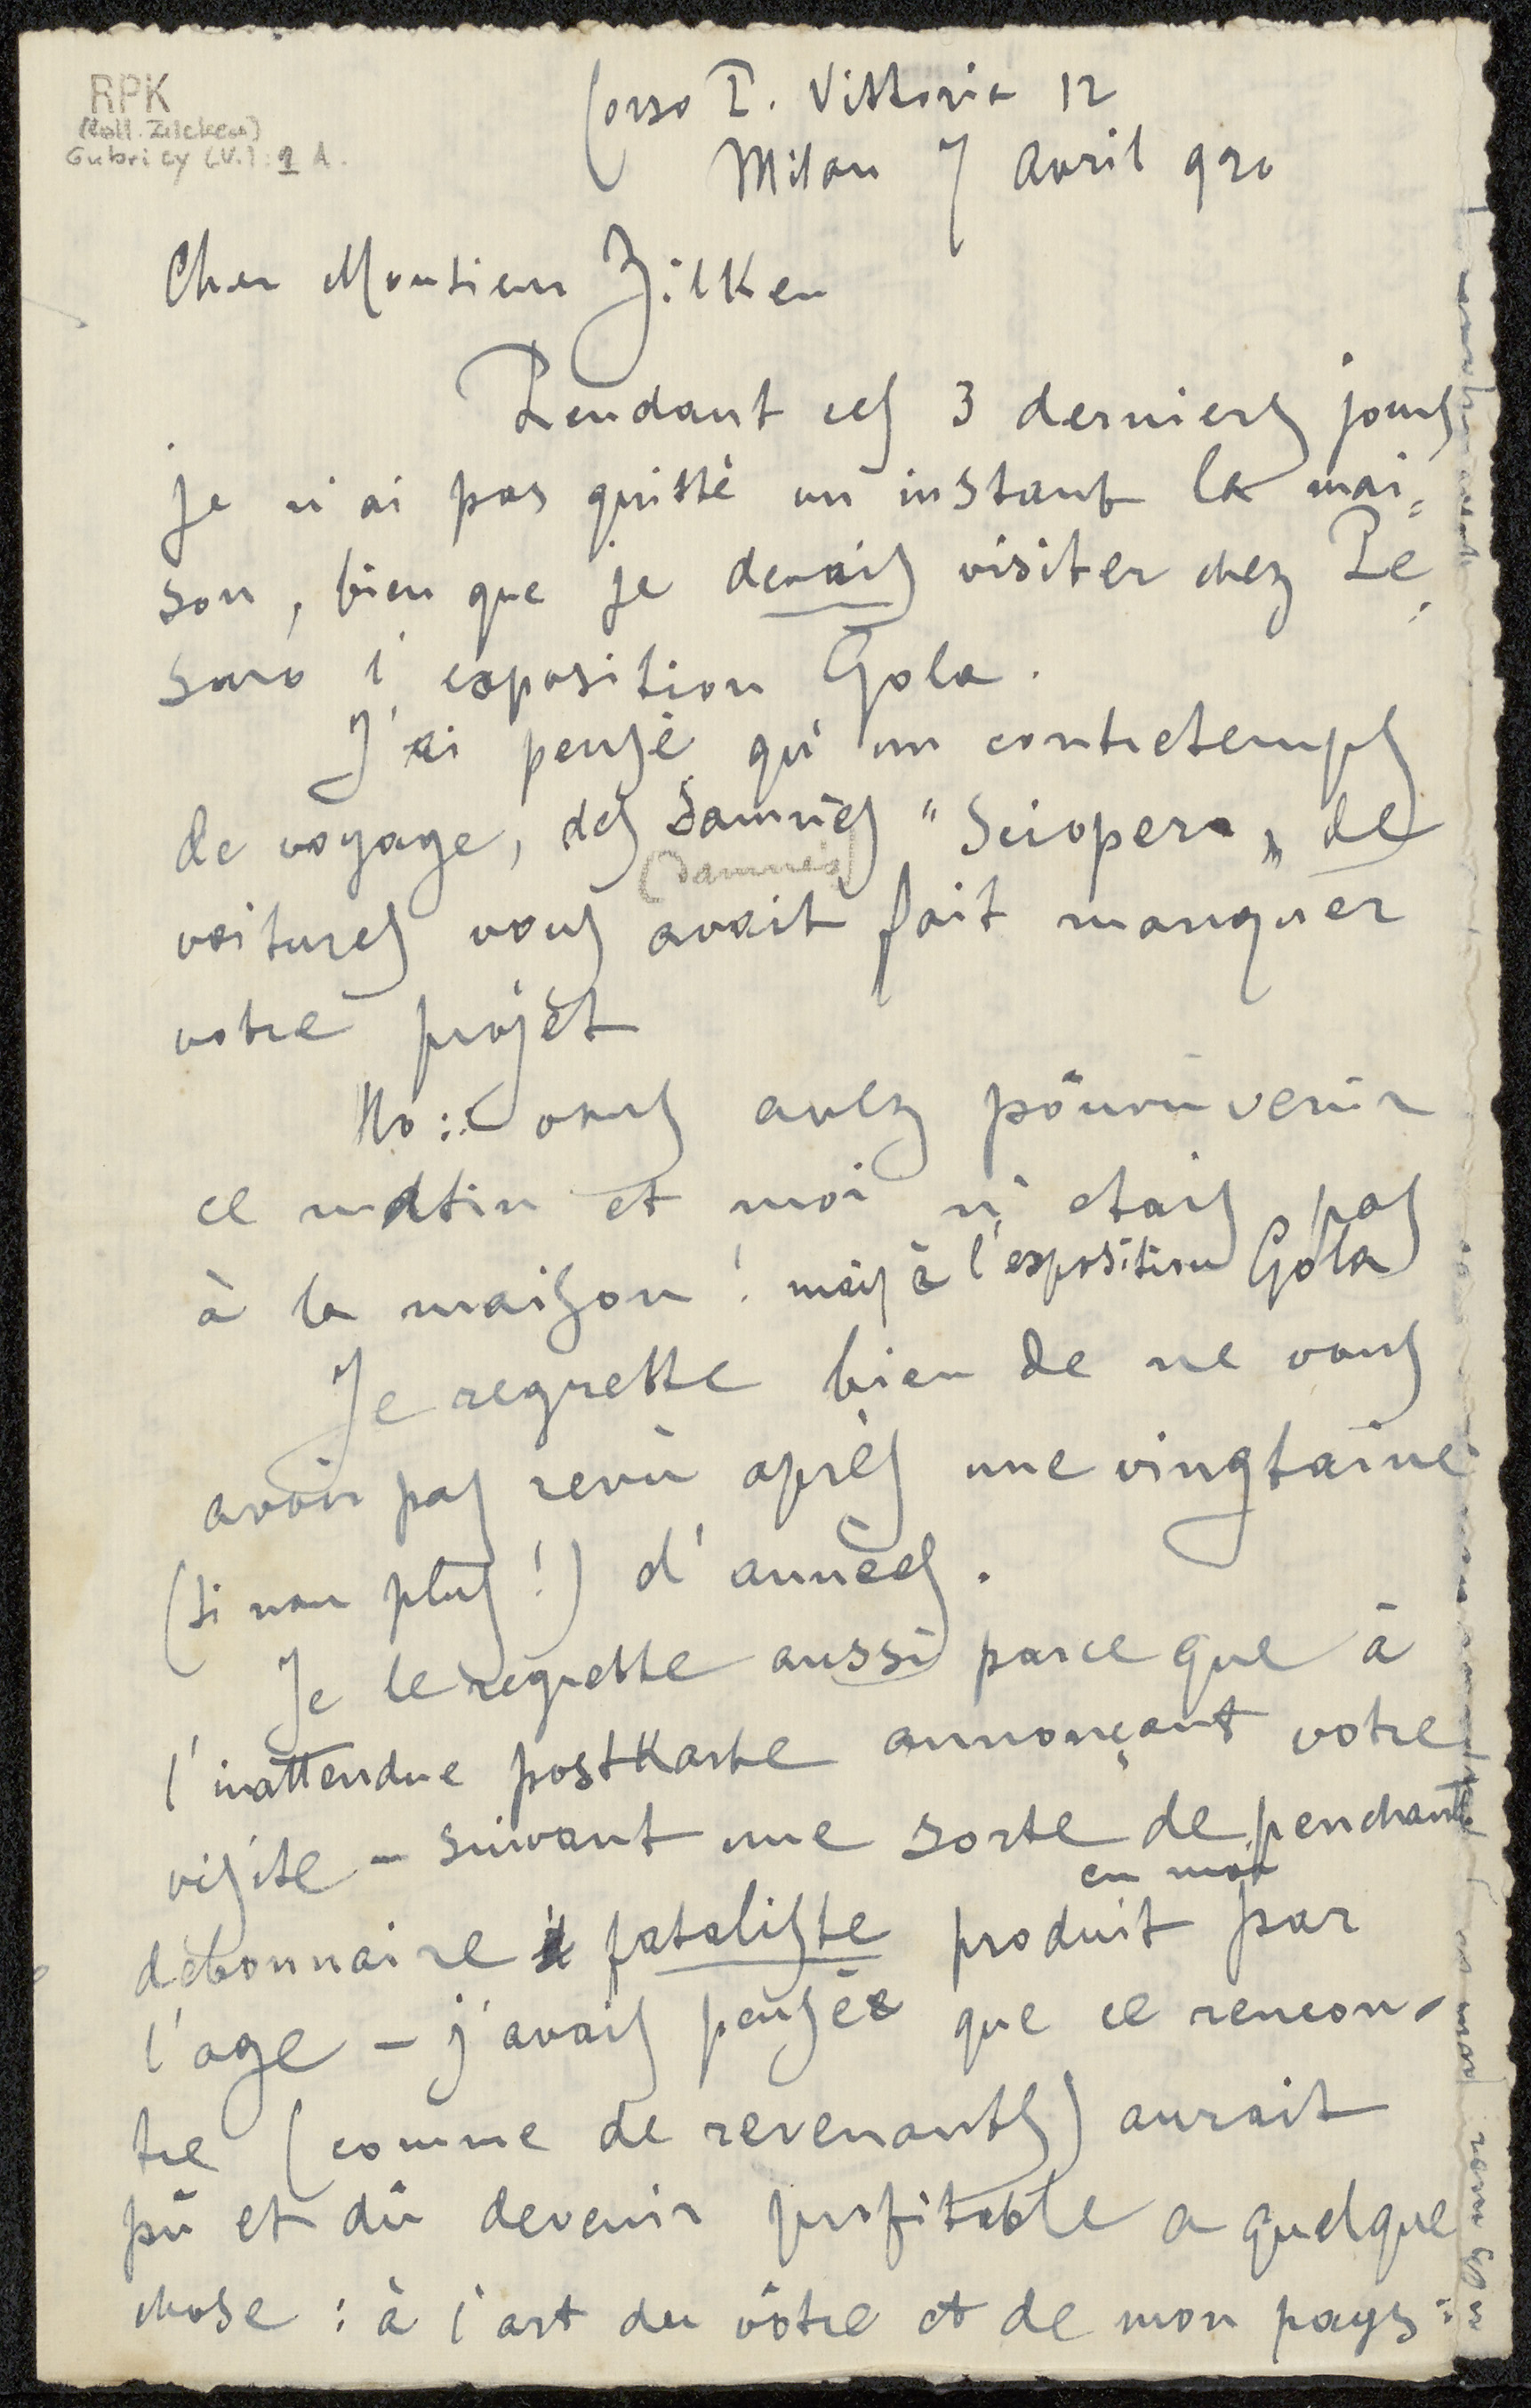 RPK
(Coll. Zilcken)
Gubricy (V.): 1 A.
Corso P. Vittoria 12
Milan 7 avril 920
Cher Monsieur Zilken
Pendant ces 3 derniers jours
je n'ai pas quitté un instant la mai=
son, bien que je devais visiter chez Pe=
saro l'exposition Gola.
J'ai pensé qu'un contretemps
de voyage, des damnés "Sciopero" de
(damnés)
voitures vous avait fait manquer
votre projet
No: vous avez pouvu venir
ce matin et moi n'etais pas
à la maison! mais à l'exposition Gola
Je regrette bien de ne vous
avoir pas revu après une vingtaine
(si non plus!) d'années.
Je le regrette aussi parce que à
l'inattendue postkarte annonçant votre
visite - suivant une sorte de penchant
en moi
debonnaire & fataliste produit par
l'age - j'avais pensée que ce rencon-
tre (comme de revenants) aurait
pû et dû devenir profitable a quelque
chose: à l'art du vôtre et de mon pays: